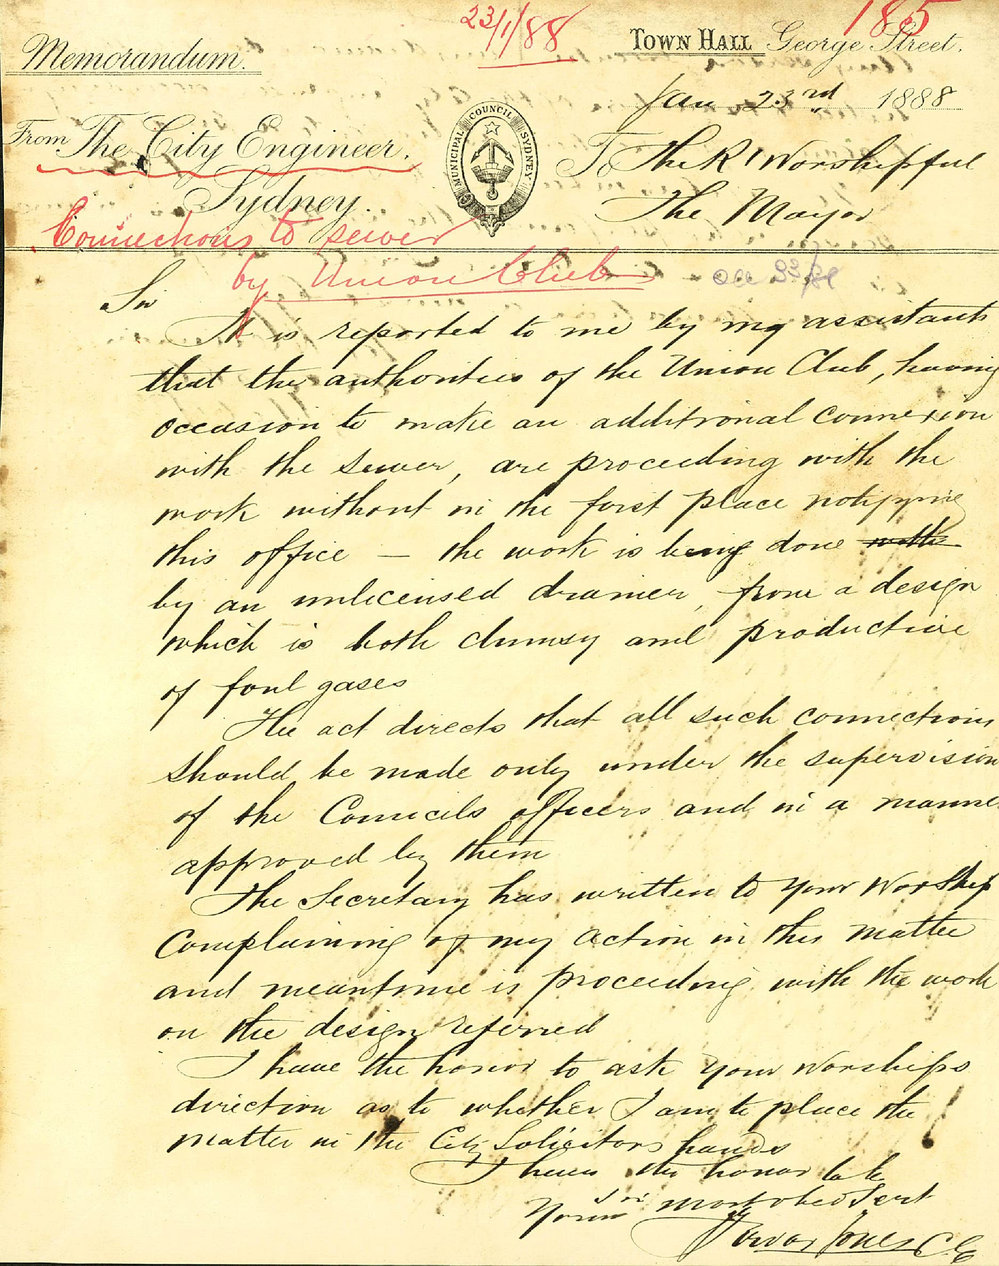 23/1/88
185
Memorandum.
TOWN HALL George Street.
Jan 23rd 1888
From The City Engineer.
Sydney.
MUNICIPAL COUNCIL SYDNEY
To The Rt Worshipful
The Mayor
Connections to sewer
by Union Club
Sir
It is reported to me by my assistants
that the authorities of the Union Club, having
occasion to make an additional connexion
with the sewer, are proceeding with the
work without in the first place notifying
this office — the work is being done with
by an unlicensed drainer, from a design
which is both clumsy and productive
of foul gases
The act directs that all such connections
should be made only under the supervision
of the Councils officers and in a manner
approved by them
The Secretary has written to your Worship
Complaining of my action in this matter
and meantime is proceeding with the work
on the design referred
I have the honor to ask your Worships
direction as to whether I am to place the
matter in the City Solicitors hands
I have the honor to be
Sir
Your most obed Servt
Trevor Jones C E